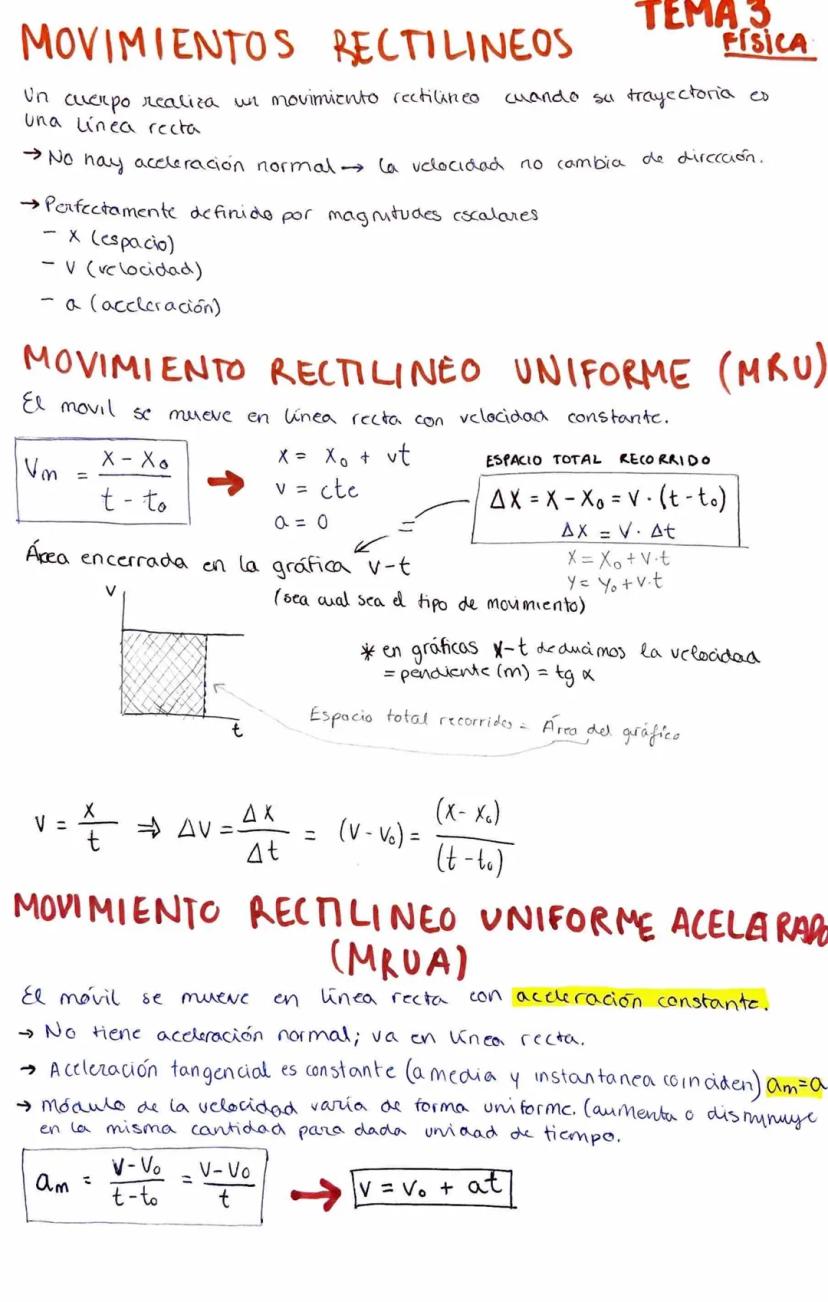 TEMA 3
FÍSICA
MOVIMIENTOS RECTILINEOS
Un cuerpo realiza un movimiento rectilíneo cuando su trayectoria es
una línea recta
→ No hay aceleración normal → la velocidad no cambia de dirección.
→ Perfectamente definido por magnitudes escalares
- x (espacio)
- v (velocidad)
- a (aceleración)
MOVIMIENTO RECTILINEO UNIFORME (MRU)
El movil se mueve en línea recta con velocidad constante.
Vm = (x - x₀)/(t - t₀) →
x = x₀ + vt
v = cte
a = 0
ESPACIO TOTAL RECORRIDO
Δx = x - x₀ = v · (t - t₀)
Δx = v · Δt
x = x₀ + v·t
y = y₀ + v·t
=
Área encerrada en la gráfica v-t
(sea cual sea el tipo de movimiento)
v
t
* en gráficas x-t deducimos la velocidad
= pendiente (m) = tg α
Espacio total recorrido = Área del gráfico
v = x/t ⇒ Δv = Δx/Δt = (v - v₀) = (x - x₀)/(t - t₀)
MOVIMIENTO RECTILINEO UNIFORME ACELERADO
(MRUA)
El móvil se mueve en línea recta con aceleración constante.
→ No tiene aceleración normal; va en línea recta.
→ Aceleración tangencial es constante (a media y instantanea coinciden) am = a
→ módulo de la velocidad varía de forma uniforme. (aumenta o disminuye
en la misma cantidad para dada unidad de tiempo.
am = (v - v₀)/(t - t₀) = (v - v₀)/t → v = v₀ + at